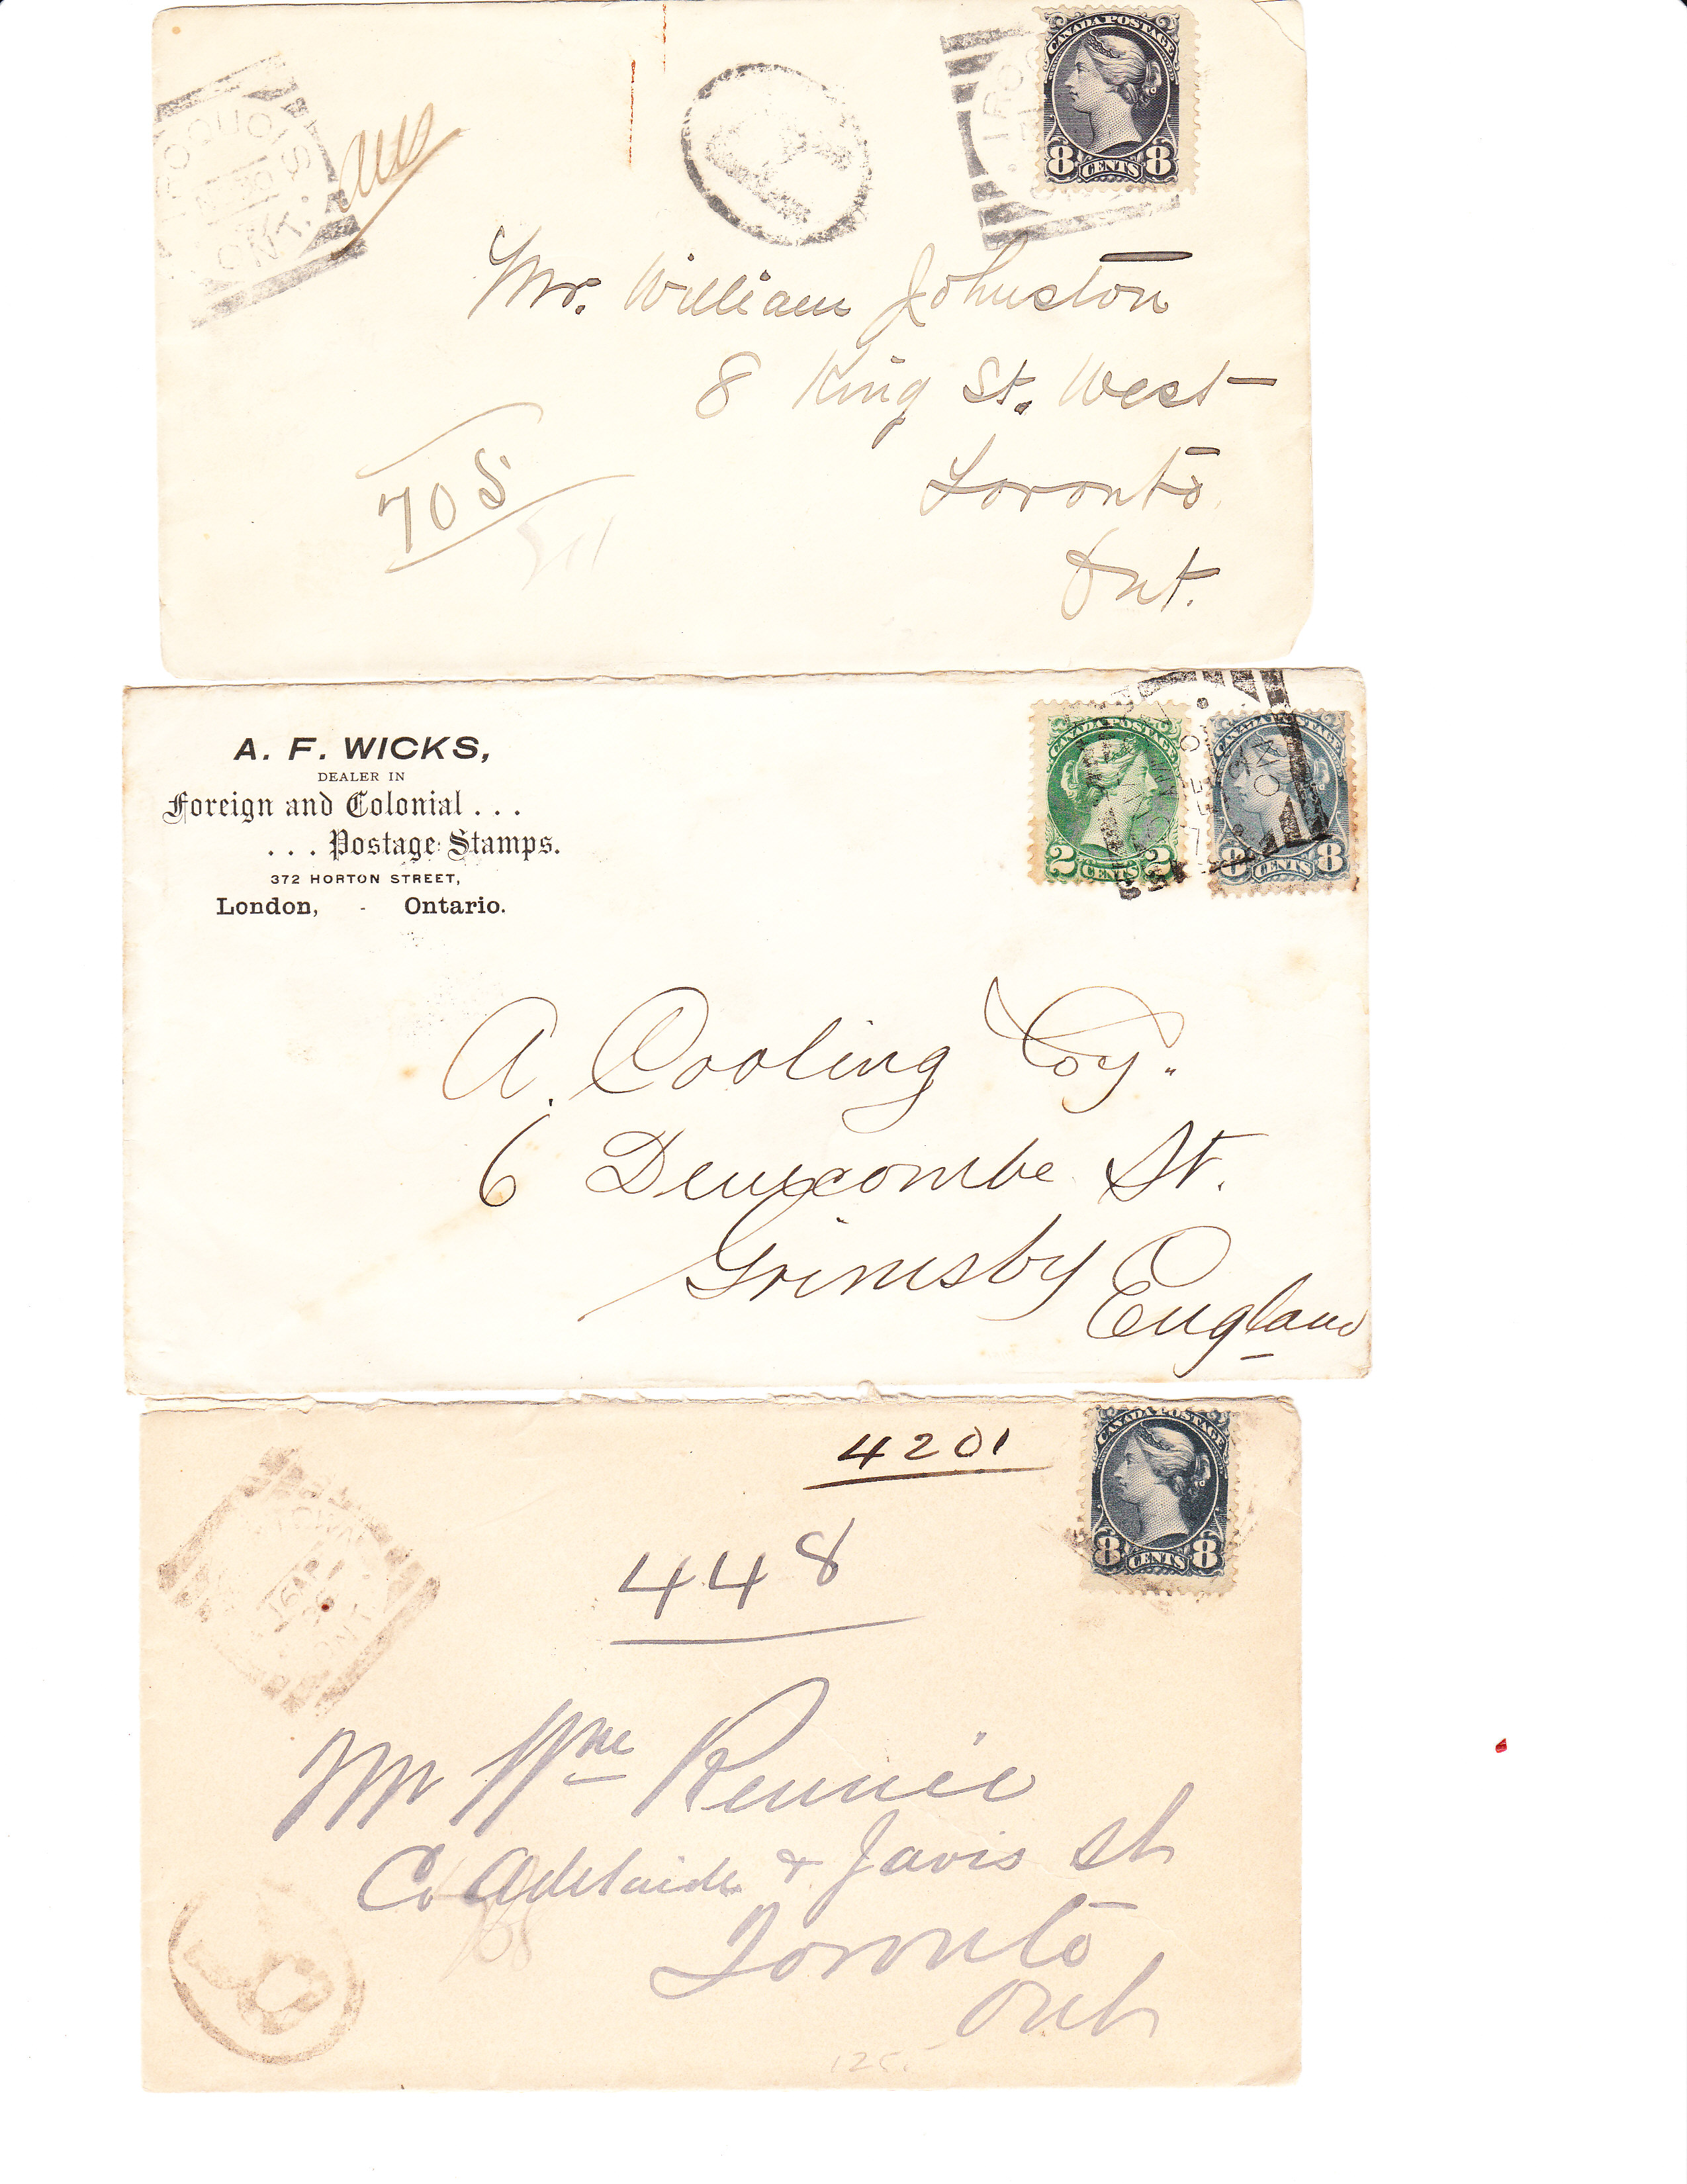 IROQUOIS
ONT.
R
CANADA POSTAGE
8 CENTS 8
Mr. William Johnston
8 King St. West
Toronto
Ont.
705
A. F. WICKS,
DEALER IN
Foreign and Colonial . . .
. . . Postage Stamps.
372 HORTON STREET,
London, - Ontario.
CANADA POSTAGE
2 CENTS 2
CANADA POSTAGE
8 CENTS 8
A. Cooling Esq.
6 St.
Grimsby
England
4201
CANADA POSTAGE
8 CENTS 8
448
TOWN
AP
ON
R
Mr Wm Rennie
Co Adelaide & Javis St
Toronto
Ont
125.